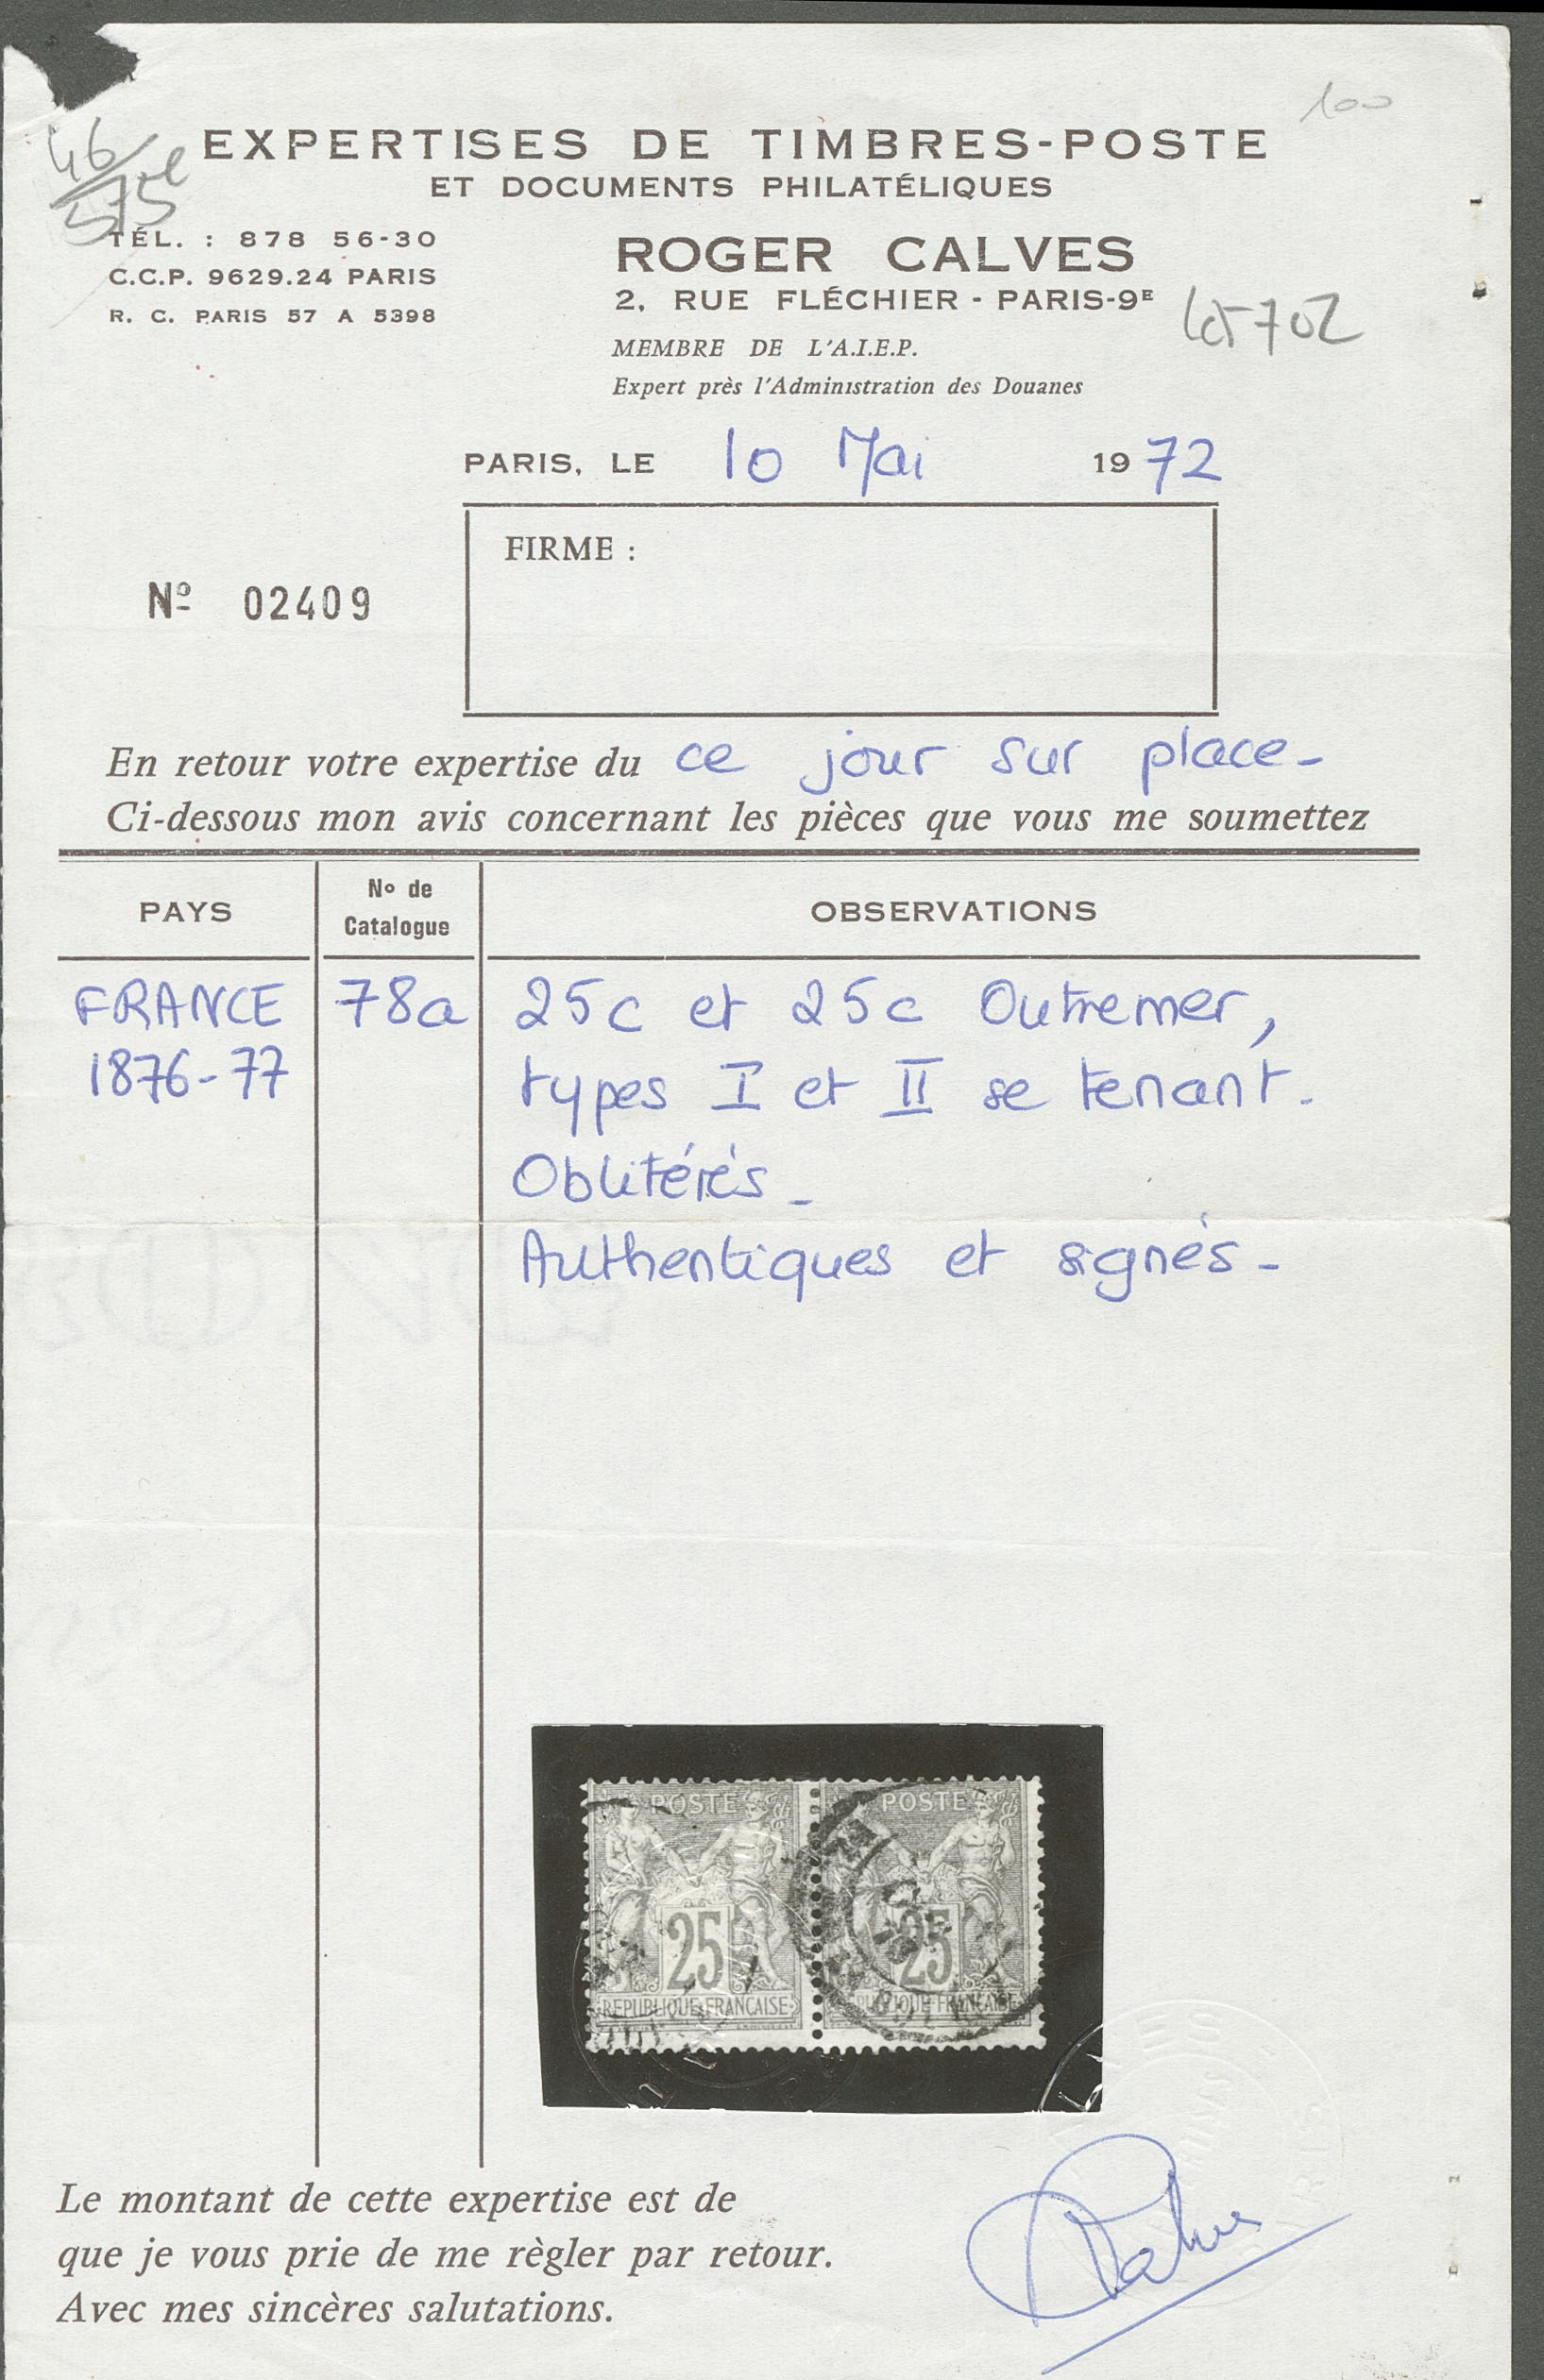 100
46/575
EXPERTISES DE TIMBRES-POSTE
ET DOCUMENTS PHILATÉLIQUES
TÉL. : 878 56-30
C.C.P. 9629.24 PARIS
R. C. PARIS 57 A 5398
ROGER CALVES
2, RUE FLÉCHIER - PARIS-9E
MEMBRE DE L'A.I.E.P.
Expert près l'Administration des Douanes
702
PARIS, LE 10 Mai 1972
FIRME :
Nº 02409
En retour votre expertise du ce jour sur place-
Ci-dessous mon avis concernant les pièces que vous me soumettez
PAYS
No de
Catalogue
OBSERVATIONS
FRANCE
1876-77
78a
25c et 25c Outremer,
types I et II se tenant.
Oblitérés-
Authentiques et signés-
POSTE POSTE
25 25
REPUBLIQUE FRANCAISE
Le montant de cette expertise est de
que je vous prie de me règler par retour.
Avec mes sincères salutations.
Calves